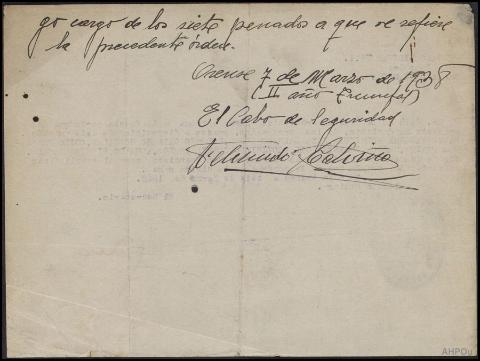 go cargo de los siete penados a que se refiere
la precedente órden.
Orense 7 de Marzo de 1938
(II año Triunfal)
El Cabo de Seguridad
AHPOu